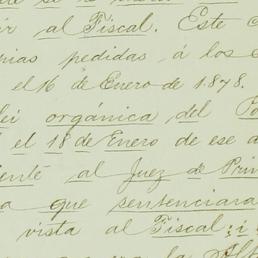 ir al Fiscal. Este
nias pedidas á los
el 16 de Enero de 1878.
lei orgánica del Po
el 18 de Enero de ese a
ente al Juez de Prim
a que sentenciara
vista al Fiscal; i s